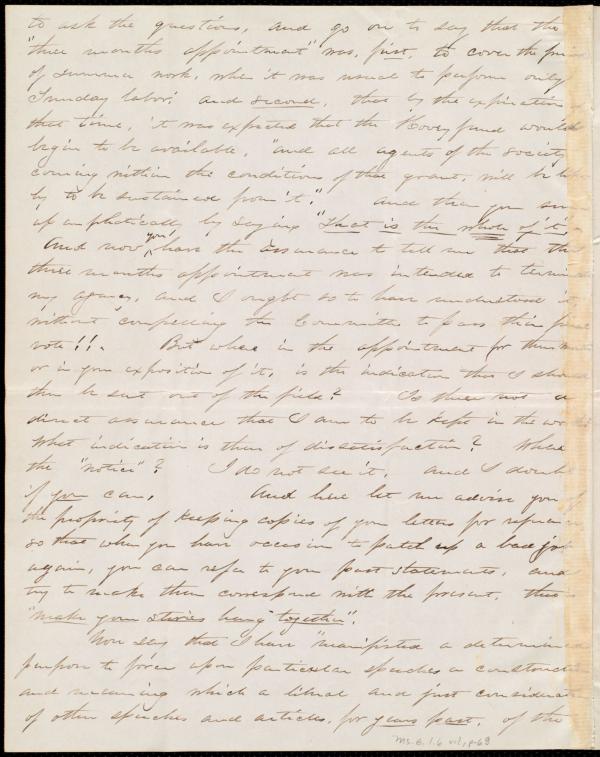 to ask the questions, and go on to say that the
"three months appointment" was, first, to cover the
of summer work, when it was usual to perform only
Sunday labor; and second, that by the expiration of
that time, it was expected that the Hovey fund would
begin to be available, "and all agents of the society
coming within the conditions of that grant, will be
by to be sustained from it." And then you
up emphatically by saying "that is the whole of it".
And now you have the assurance to tell me that the
three months appointment was intended to
my agency, and I ought so to have understood it,
without compelling the Committee to pass their
vote!!. But where in the appointment for three
or in your exposition of it, is the indication that I
then be sent out of the field? Is there not a
direct assurance that I am to be kept in the
What indication is there of dissatisfaction? Where
the "notice"? I do not see it, and I doubt
if you can. And here let me advise you of
the propriety of keeping copies of your letters for
so that when you have occasion to patch up a bad job
again, you can refer to your past statements, and
try to make them correspond with the present, thus
"make your stories hang together".
You say that I have "manifested a determined
purpose to force upon particular speeches a
and meaning which a liberal and just
of other speeches and articles, for years past, of the